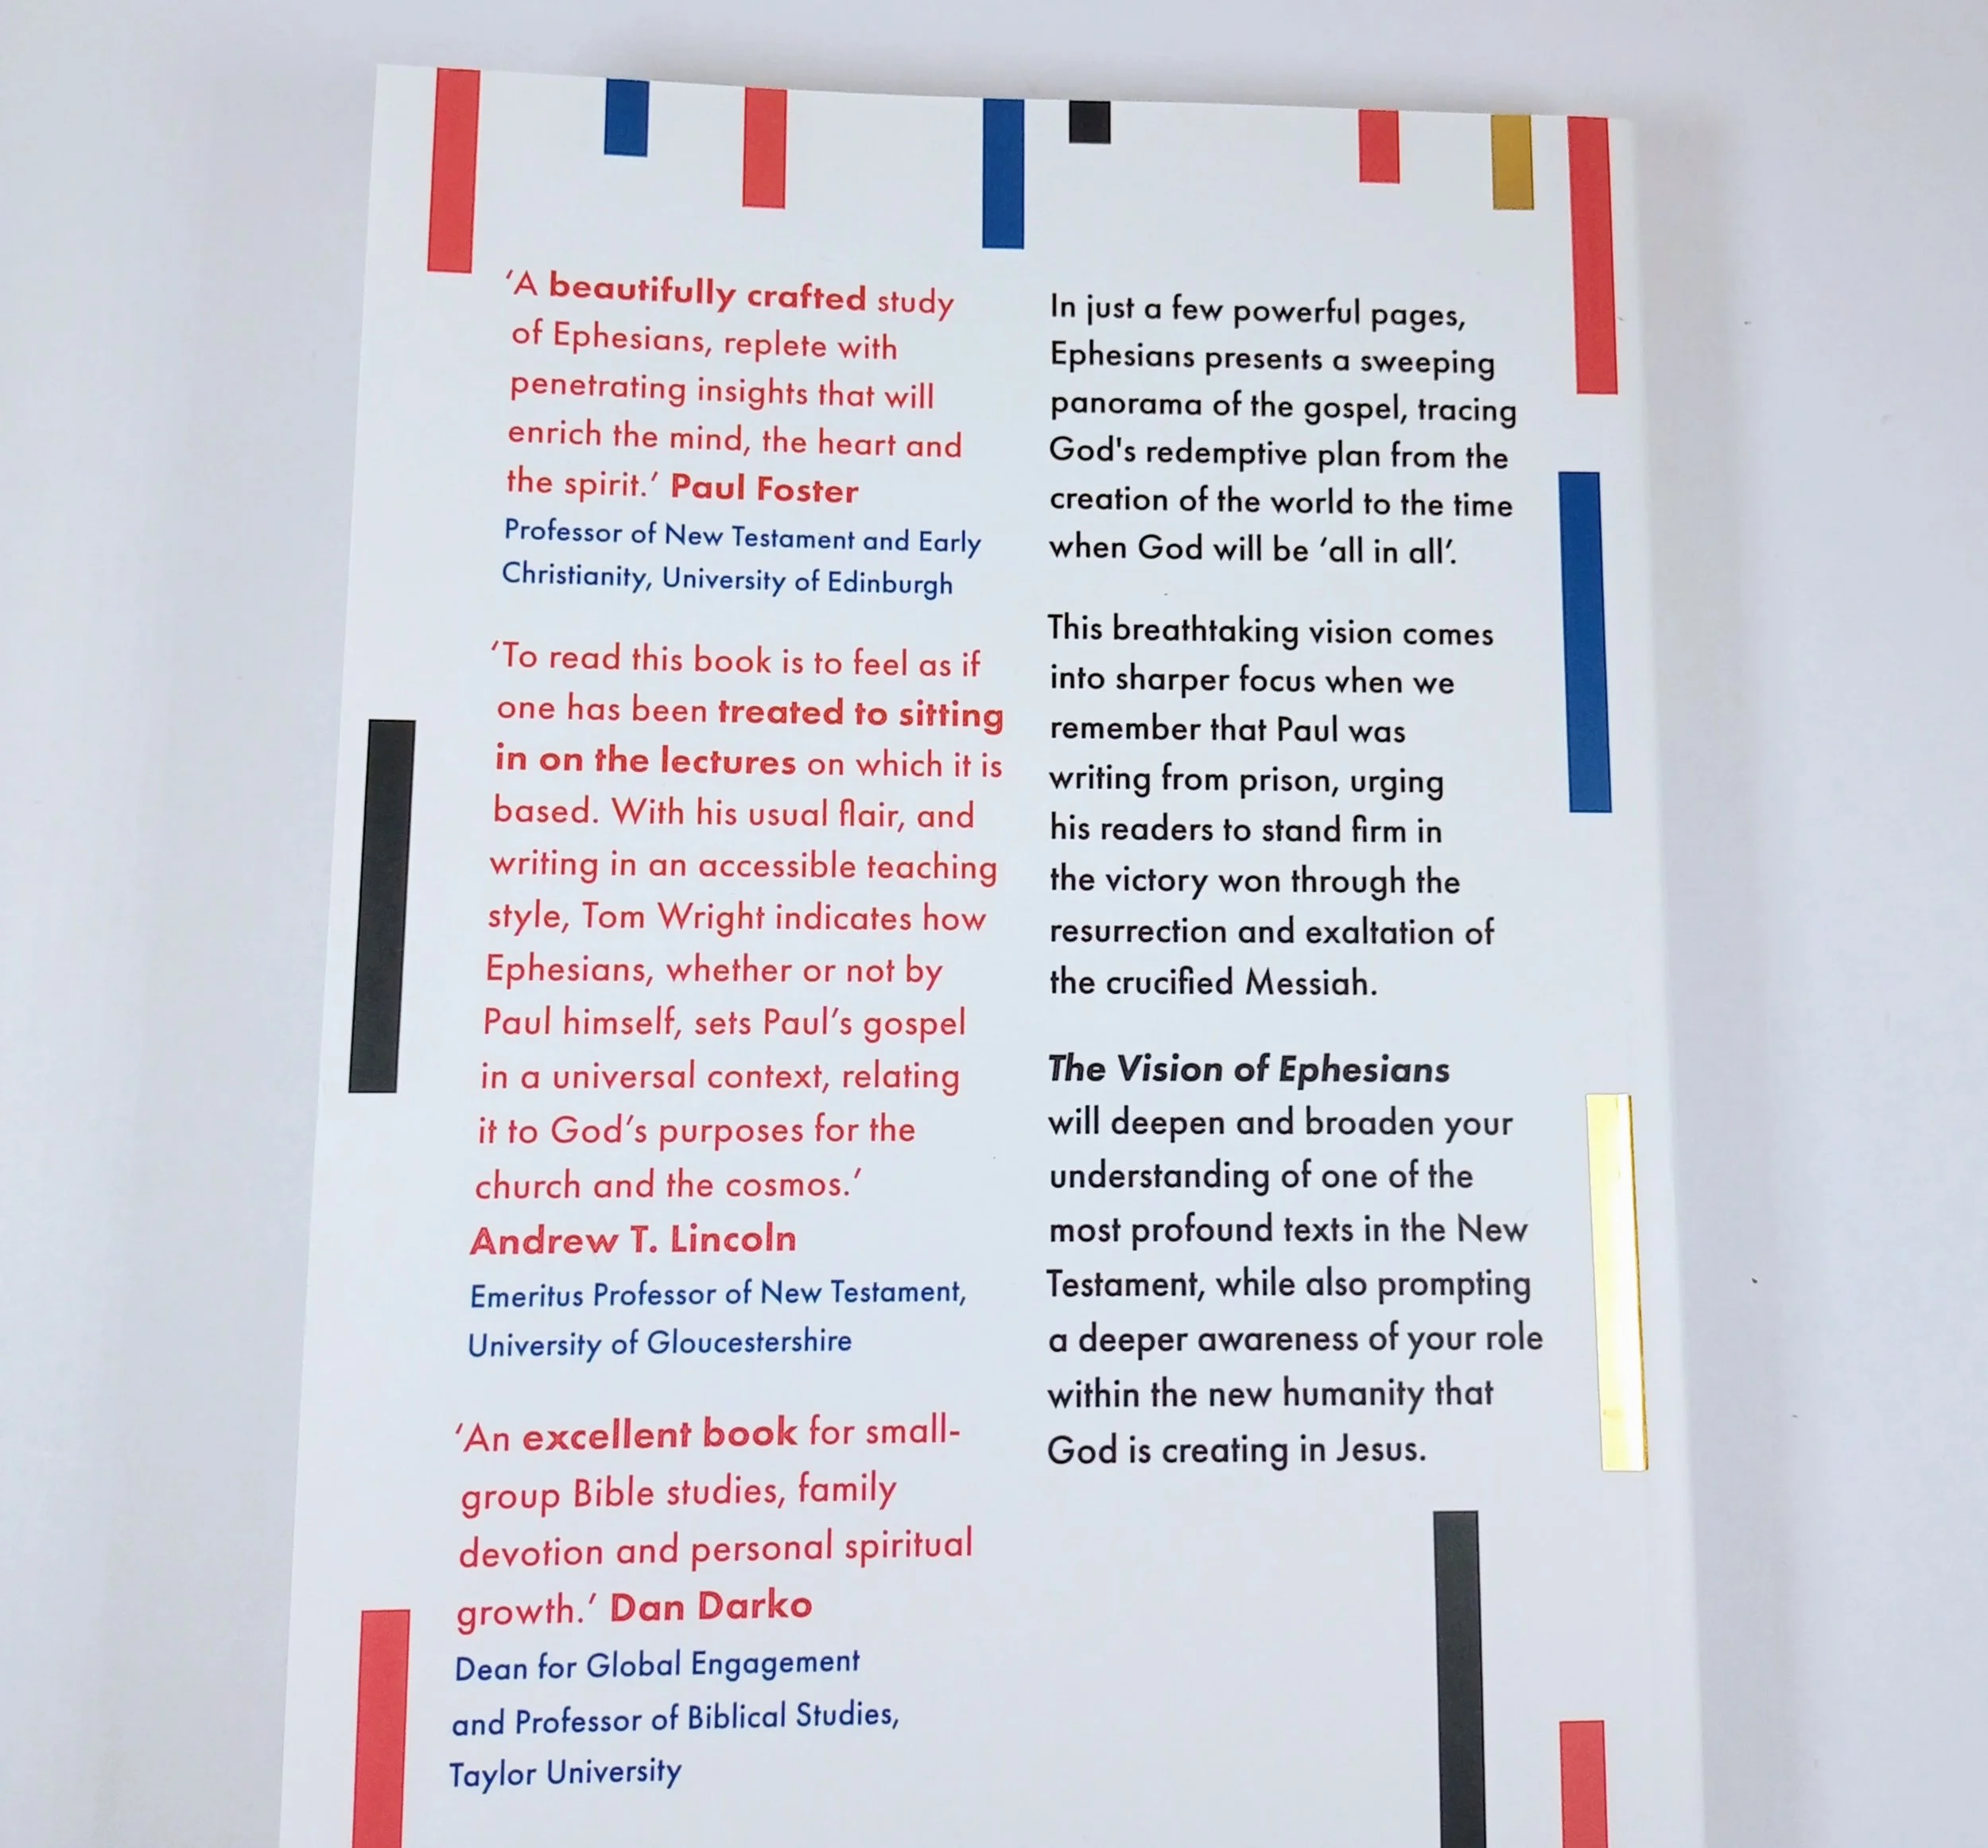 ‘A beautifully crafted study
of Ephesians, replete with
penetrating insights that will
enrich the mind, the heart and
the spirit.’ Paul Foster
Professor of New Testament and Early
Christianity, University of Edinburgh
‘To read this book is to feel as if
one has been treated to sitting
in on the lectures on which it is
based. With his usual flair, and
writing in an accessible teaching
style, Tom Wright indicates how
Ephesians, whether or not by
Paul himself, sets Paul’s gospel
in a universal context, relating
it to God’s purposes for the
church and the cosmos.’
Andrew T. Lincoln
Emeritus Professor of New Testament,
University of Gloucestershire
‘An excellent book for small-
group Bible studies, family
devotion and personal spiritual
growth.’ Dan Darko
Dean for Global Engagement
and Professor of Biblical Studies,
Taylor University
In just a few powerful pages,
Ephesians presents a sweeping
panorama of the gospel, tracing
God's redemptive plan from the
creation of the world to the time
when God will be ‘all in all’.
This breathtaking vision comes
into sharper focus when we
remember that Paul was
writing from prison, urging
his readers to stand firm in
the victory won through the
resurrection and exaltation of
the crucified Messiah.
The Vision of Ephesians
will deepen and broaden your
understanding of one of the
most profound texts in the New
Testament, while also prompting
a deeper awareness of your role
within the new humanity that
God is creating in Jesus.